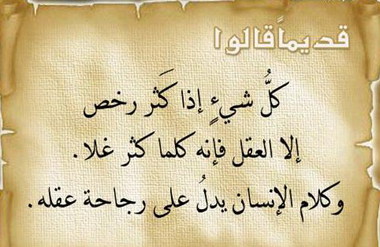 قديماً قالوا
كلُّ شيءٍ إذا كَثر رخص
إلا العقل فإنه كلما كثر غلا.
وكلام الإنسان يدلُ على رجاحة عقله.